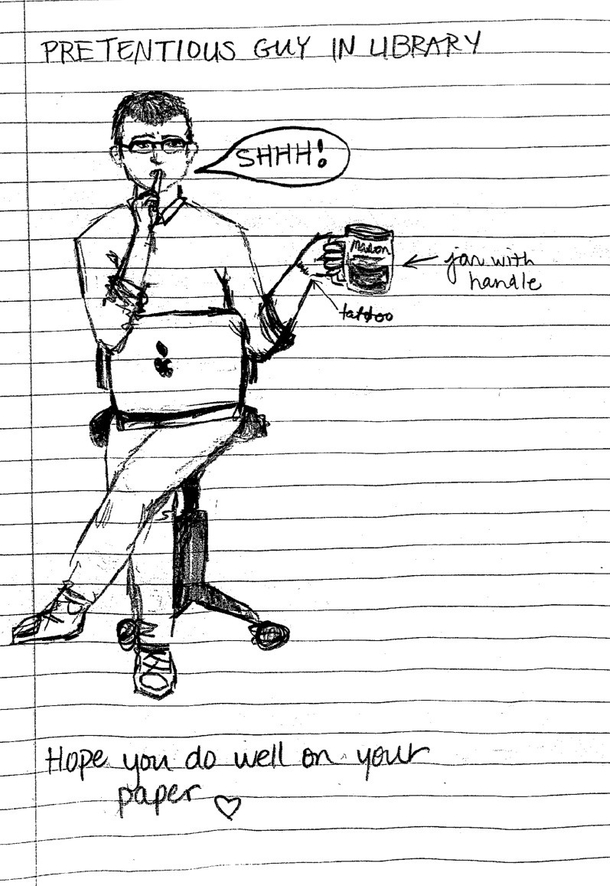 PRETENTIOUS GUY IN LIBRARY
SHHH!
Mason
jar with
handle
tattoo
Hope you do well on your
paper ♡